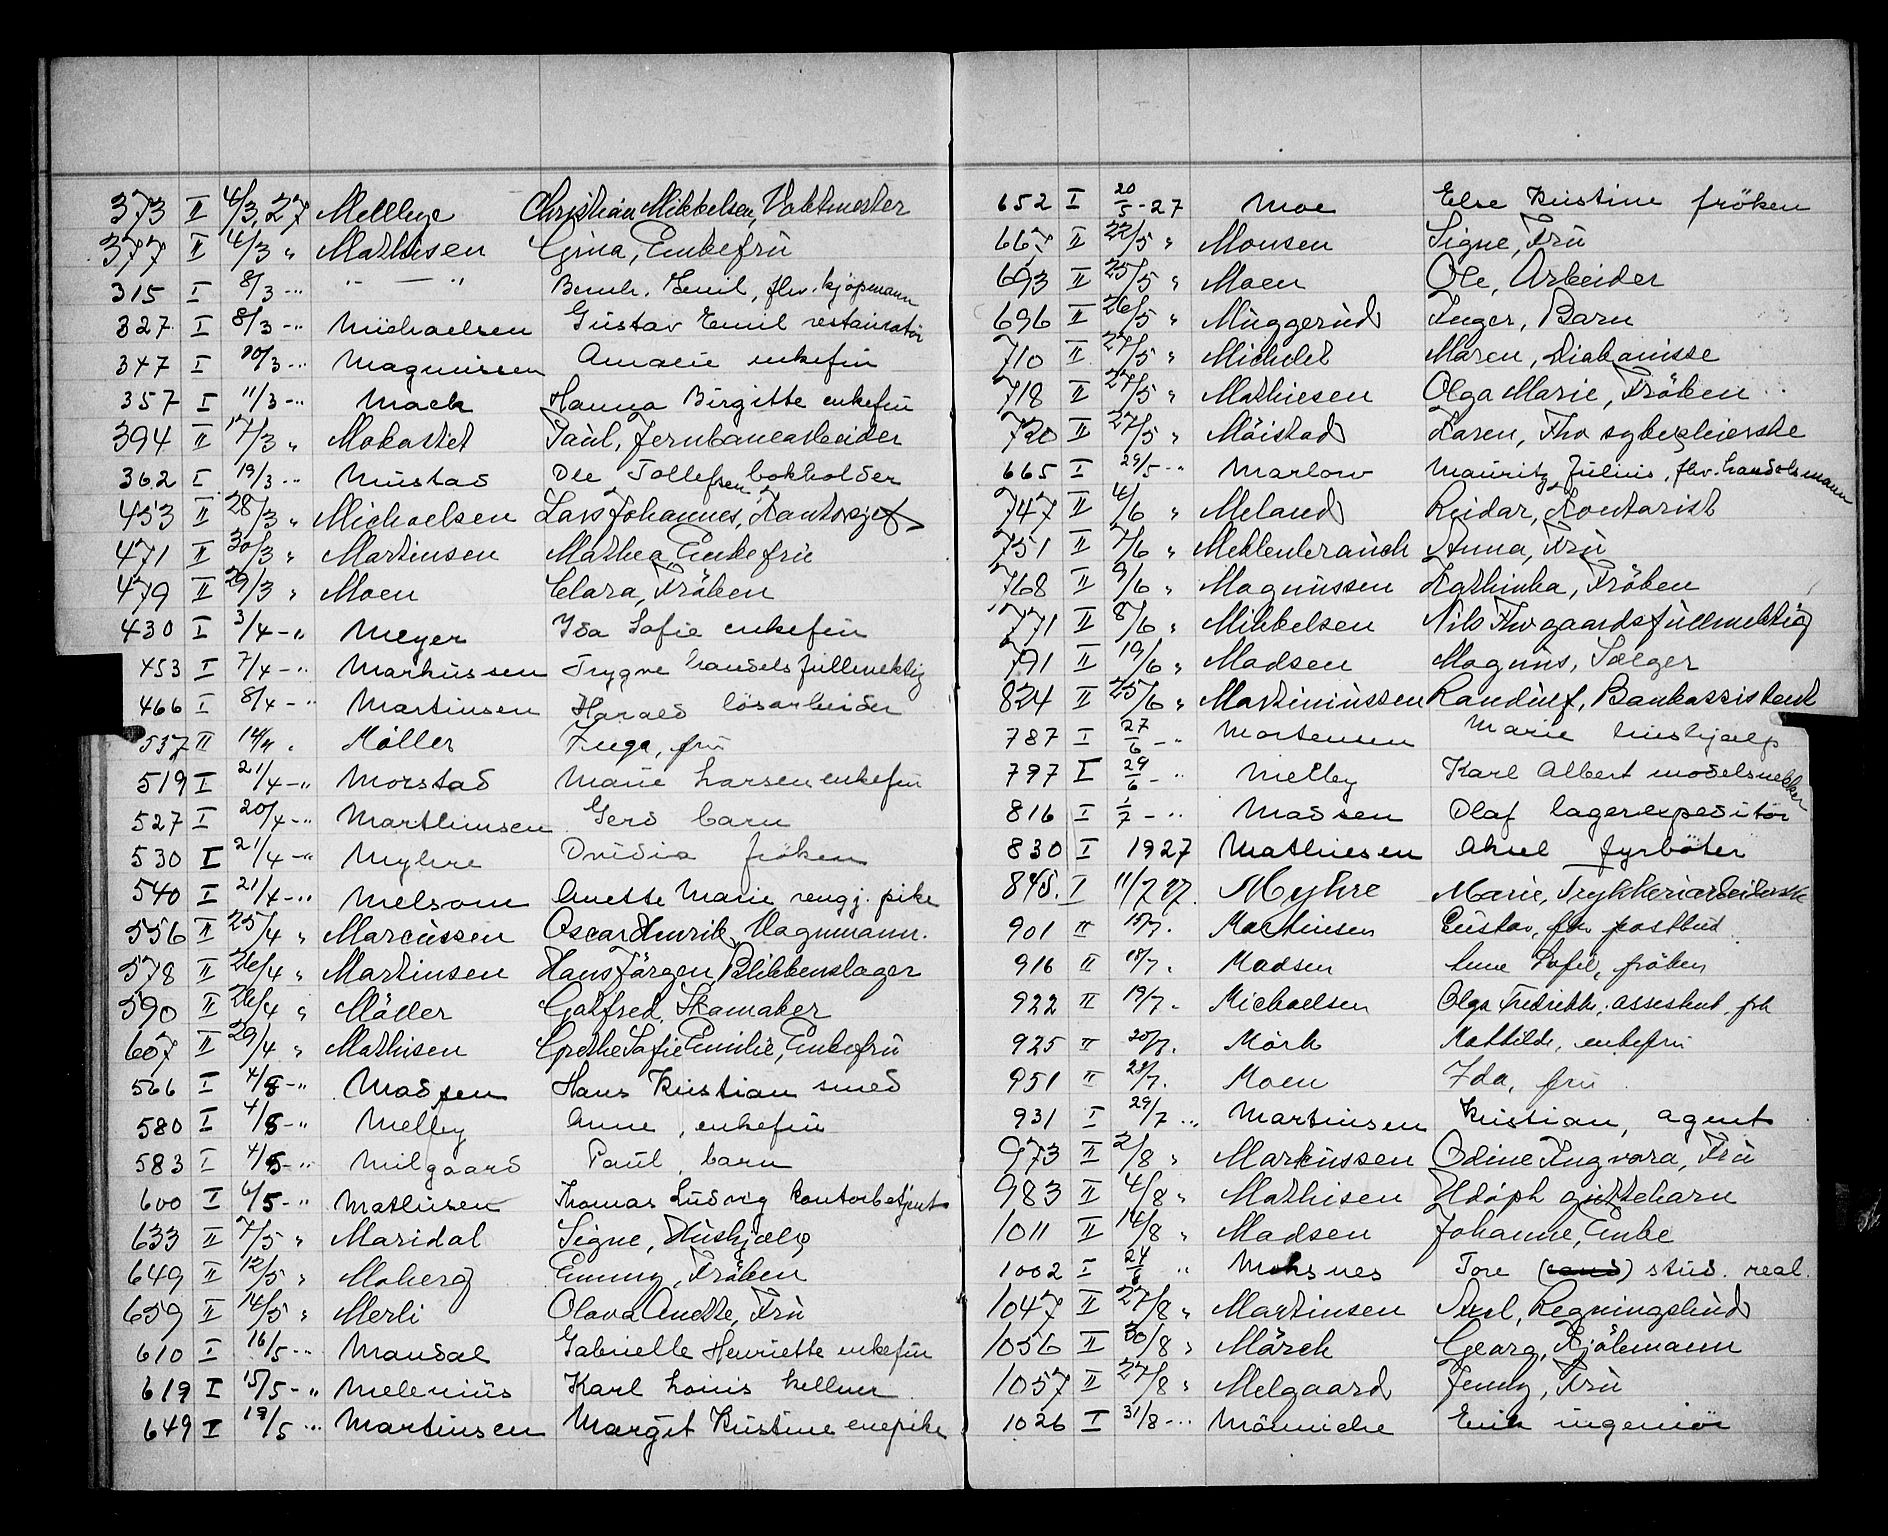 373 II 4/3 27 Mellbye Christian Mikkelsen, Vaktmester
377 II 4/3 " Mathisen Gina, Enkefrü
315 I 8/3 - " " — " Bernh. Emil, fhv. kjøpmann
327 I 8/3 - " Michaelsen Gustav Emil restauratör
347 I 10/3 - " Magnussen Amalie enkefrü
357 I 11/3 - " Mack Hanna Birgitte enkefrü
394 II 17/3 " Mokastet Paül, Jernbanearbeider
362 I 19/3 - " Mustad Ole Tollefsen bokholder
453 II 28/3 " Michaelsen Lars Johannes, Kontorsjef
471 II 30/3 " Martinsen Mathea Enkefrü
479 II 29/3 " Moen Clara, Fröken
430 I 3/4 - " Meyer Ida Sofie enkefrü
453 I 7/4 - " Markussen Trygve handelsfullmektig
466 I 8/4 - " Martinsen Harald lösarbeider
537 II 14/4 " Möller Inga, frü
519 I 21/4 - " Morstad Marie Larsen enkefrü
527 I 20/4 - " Marthinsen Gerd barn
530 I 21/4 - " Myhre Ovidia fröken
540 I 21/4 - " Melsom Anette Marie rengj. pike
556 II 25/4 " Marcüssen Oscar Henrik, Vognmann.
578 II 26/4 " Martinsen Hans Jörgen, Blikkenslager
590 II 26/4 " Möller Gotfred, Skomaker
607 II 29/4 " Mathisen Grethe Sofie Emilie, Enkefrü
566 I 4/5 - " Madsen Hans Kristian smed
580 I 4/5 - " Melby Anne, enkefrü
583 I 4/5 - " Milgaard Paul, barn
600 I 6/5 - " Mathisen Thomas Ludvig kontorbetjent
633 II 7/5 " Maridal Signe, Hüshjælp
649 II 12/5 " Moberg Emmy, Fröken
659 II 14/5 " Merli Olava Anette, Frü
610 I 16/5 - " Mandal Gabrielle Henriette enkefrü
619 I 15/5 - " Melenius Karl Louis kellner
649 I 19/5 - " Martinsen Margit Kristine enepike
652 I 20/5 - 27 Moe Else Kristine fröken
667 II 22/5 " Monsen Signe, Frü
693 II 25/5 " Moen Ole, Arbeider
696 II 26/5 " Müggerüd Inger, Barn
710 II 27/5 " Michelet Maren, Diakonisse
718 II 27/5 " Mathiesen Olga Marie, Fröken
720 II 27/5 " Möistad Karen, Fhv sykepleierske
665 I 29/5 - " Marlow Mauritz Julius, fhv. handelsmann
747 II 4/6 " Meland Reidar, Kontorist
751 II 7/6 " Mehlenbrauch Anna, Frü
768 II 9/6 " Magnüssen Kathinka, Fröken
771 II 8/6 " Mikkelsen Nils Fhv gaardsfüllmektig
791 II 19/6 " Madsen Magnüs, Selger
824 II 25/6 " Martiniüssen Randülf, Bankassistent
787 I 27/6 - " Mortensen Marie hushjælp
797 I 29/6 - " Melby Karl Albert modelsnekker
816 I 1/7 - " Madsen Olaf lagerexpeditör
830 I 1927 Mathiesen Aksel fyrböter
845. I 11/7 27. Myhre Marie, Trykkeriarbeiderske
901 II 15/7. Martinsen Gustav, fhv postbud
916 II 18/7. Madsen Anne Sofie, fröken
922 II 19/7. Michaelsen Olga Fredrikke, assestent, frk
925 II 20/7. Mörk Mathilde, enkefrü
951 II 28/7. Moen Ida, frü
931 I 29/7 " Martinsen Kristian, agent
973 II 2/8 " Markussen Odine Ingvara, Frü
983 II 4/8 " Mathisen Udöpt güttebarn
1011 II 14/8 " Madsen Johanne, Enke
1002 I 24/8 " Mohsnes Tore (cand) stud. real.
1047 II 27/8 " Martinsen Axel, Regningsbüd
1056 II 30/8 " Mörch Georg, Kjöbmann
1057 II 27/8 " Melgaard Jenny, Frü
1026 I 31/8 - " Mölmiche Erik ingeniör